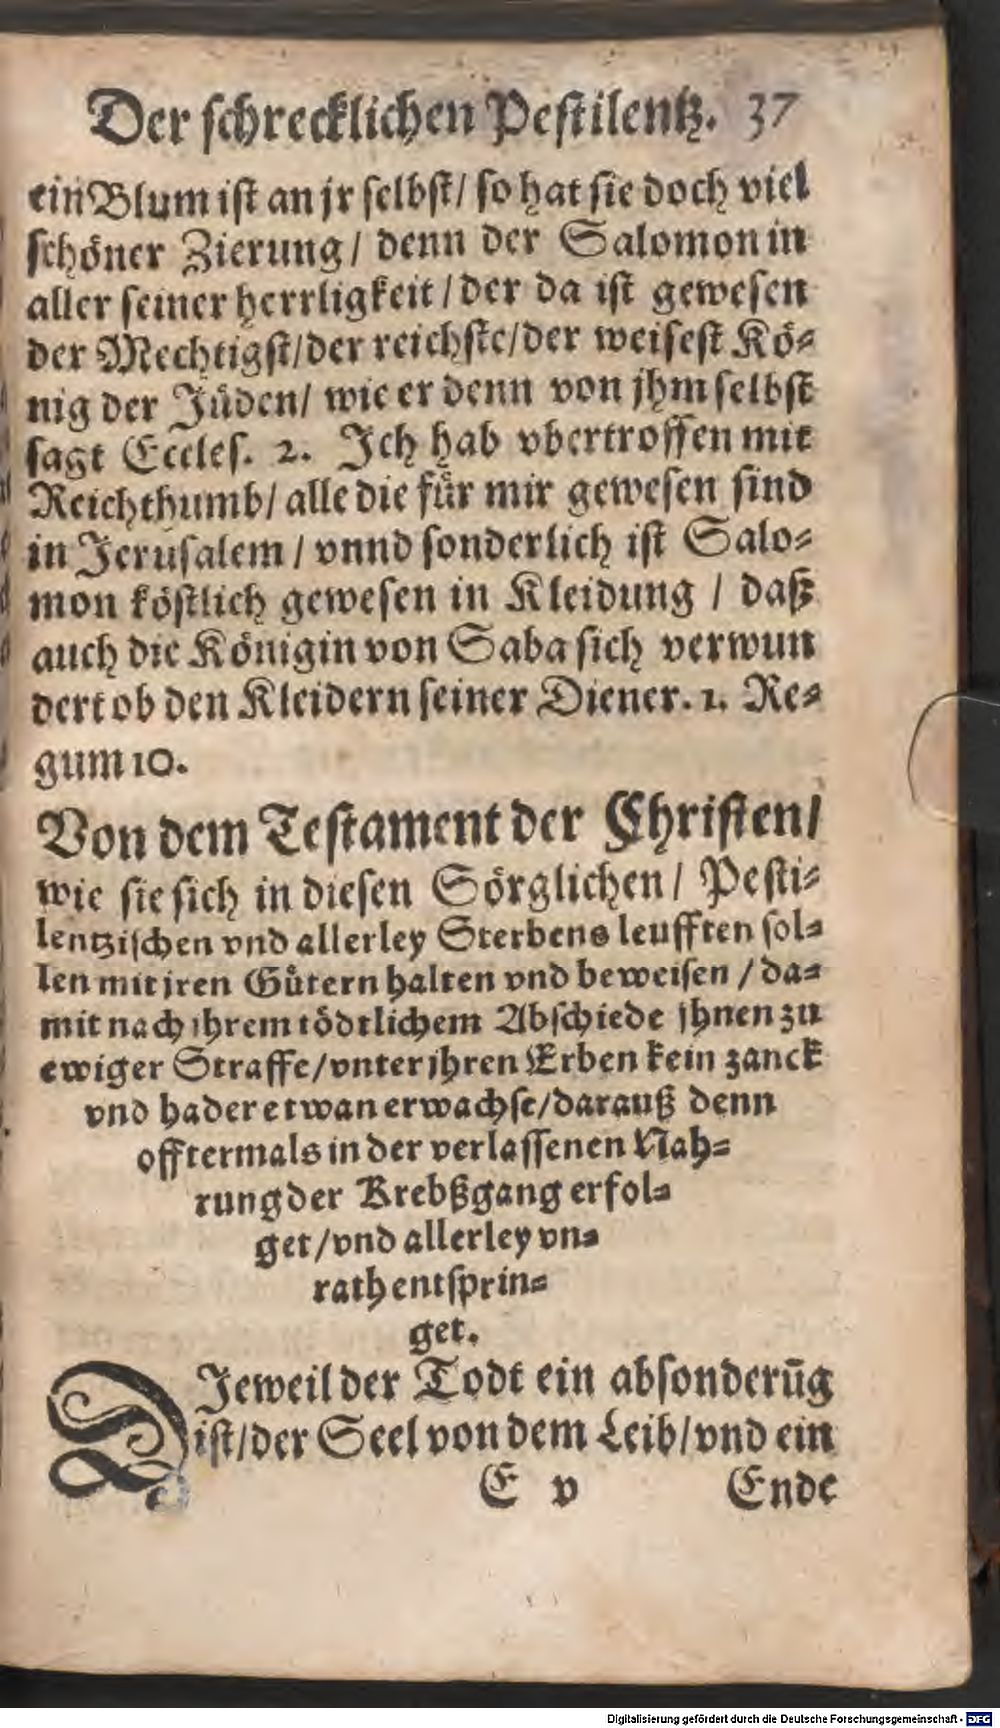 Der ſchrecklichen Peſtilentz. 37
ein Blum iſt an jr ſelbſt/ ſo hat ſie doch viel
ſchöner Zierung/ denn der Salomon in
aller ſeiner herrligkeit/ der da iſt geweſen
der Mechtigſt/der reichſte/der weiſeſt Kö⸗
nig der Jüden/ wie er denn von jhm ſelbſt
ſagt Eccleſ. 2. Ich hab vbertroffen mit
Reichthumb/ alle die für mir geweſen ſind
in Jeruſalem/ vnnd ſonderlich iſt Salo⸗
mon köſtlich geweſen in Kleidung/ daß
auch die Königin von Saba ſich verwun
dert ob den Kleidern ſeiner Diener. 1. Re⸗
gum 10.
Von dem Teſtament der Chriſten/
wie ſie ſich in dieſen Sörglichen/ Peſti⸗
lentziſchen vnd allerley Sterbens leufften ſol⸗
len mit jren Gütern halten vnd beweiſen/ da⸗
mit nach jhrem tödtlichem Abſchiede jhnen zu
ewiger Straffe/vnter jhren Erben kein zanck
vnd hader etwan erwachſe/darauß denn
offtermals in der verlaſſenen Nah⸗
rung der Krebßgang erfol⸗
get/vnd allerley vn⸗
rath entſprin⸗
get.
DJeweil der Todt ein abſonderūg
iſt/der Seel von dem Leib/vnd ein
E v Ende
Digitalisierung gefördert durch die Deutsche Forschungsgemeinschaft - DFG